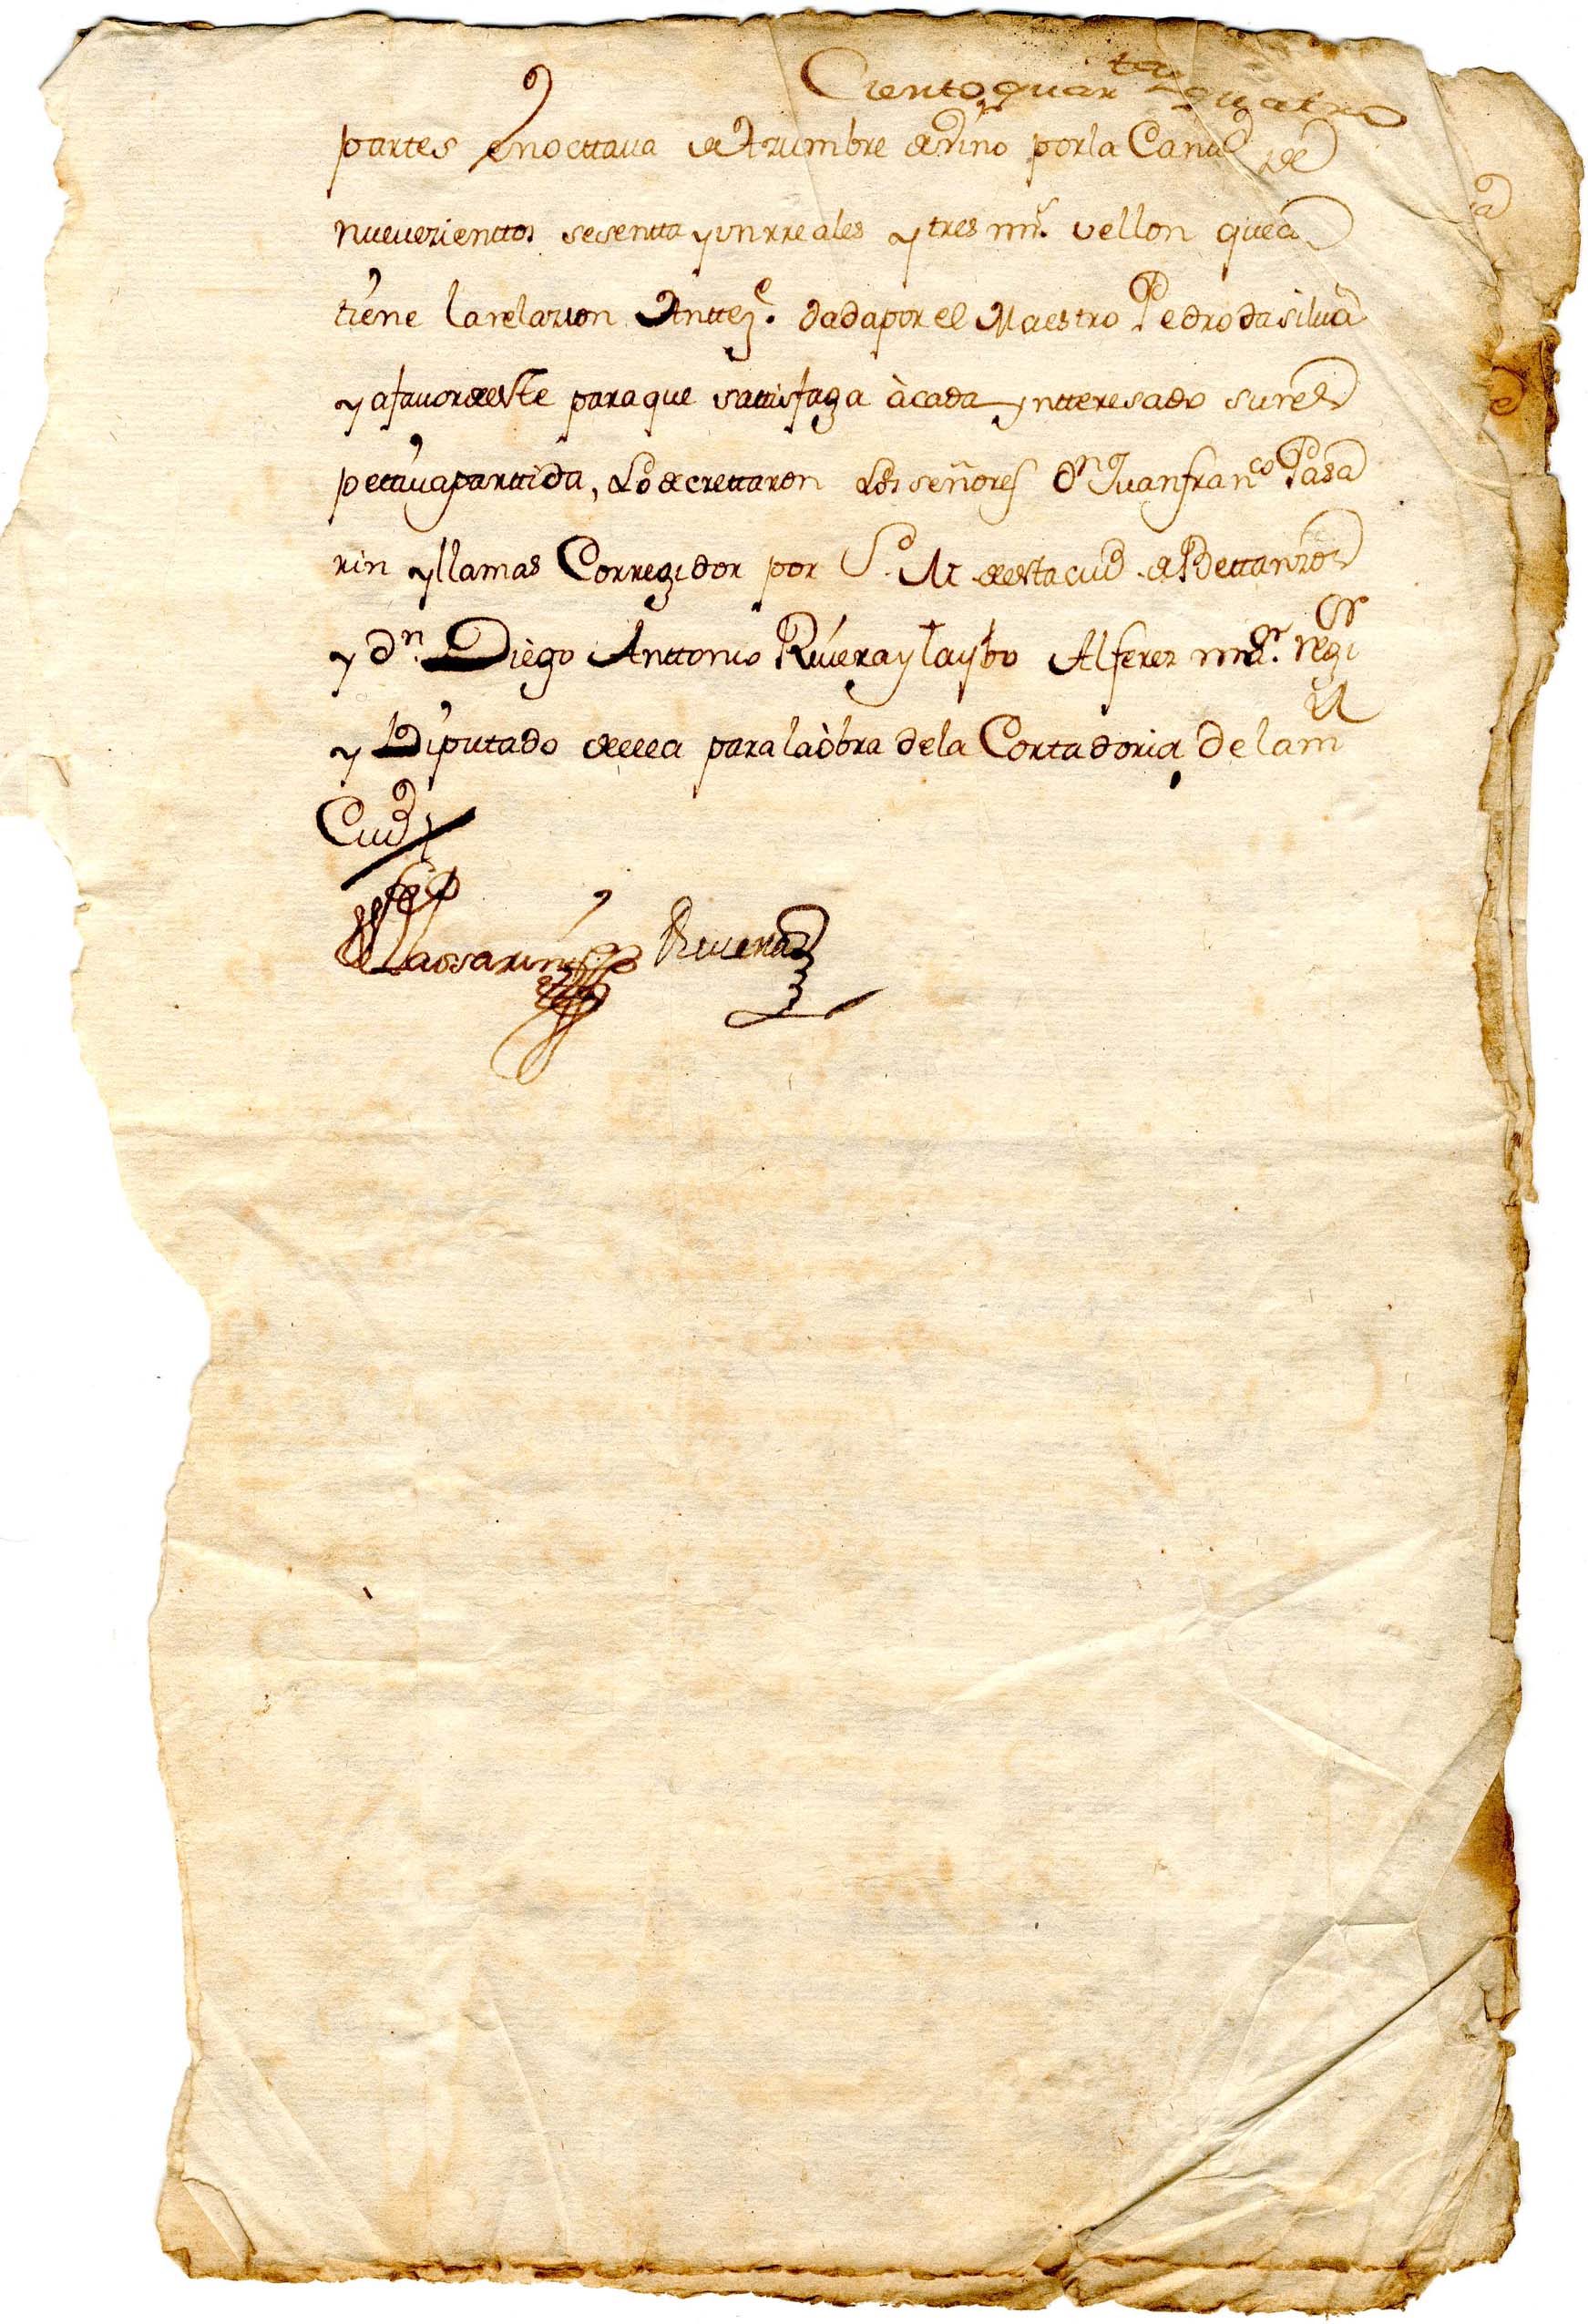 Ciento quar.ta y quatro
partes en octtaua de Azumbre de Vino por la Cantd de
nueuezienttos sesentta y un rreales y tres mrs. vellon que con
tiene la relazion Anttezte. dada por el Maestro Pedro da silua
y a fauor deeste para que sattisfaga à cada yntteresado su res
pettiua parttida, Lo decrettaron Los señores Dn Juan franco Pasa
rin y llamas Corregidor por S. M deesta ciud de Bettanzos
y Dn. Diego Anttonio Riuera y taybo Alferez mor. regor
y Diputado deella para la òbra de la Cortadoria de la m
Ciud
Passarin Riuera